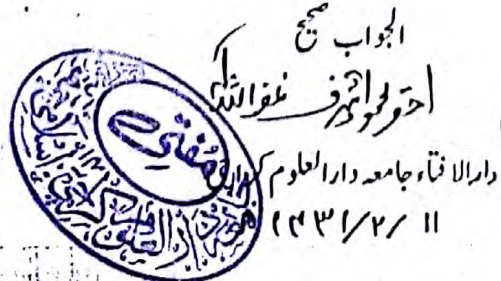 الجواب صحیح
احقر محمود اشرف غفر اللہ لہ
دارالافتاء جامعہ دارالعلوم کراچی
۱۱/۲/۱۴۳۱ھ
مفتی